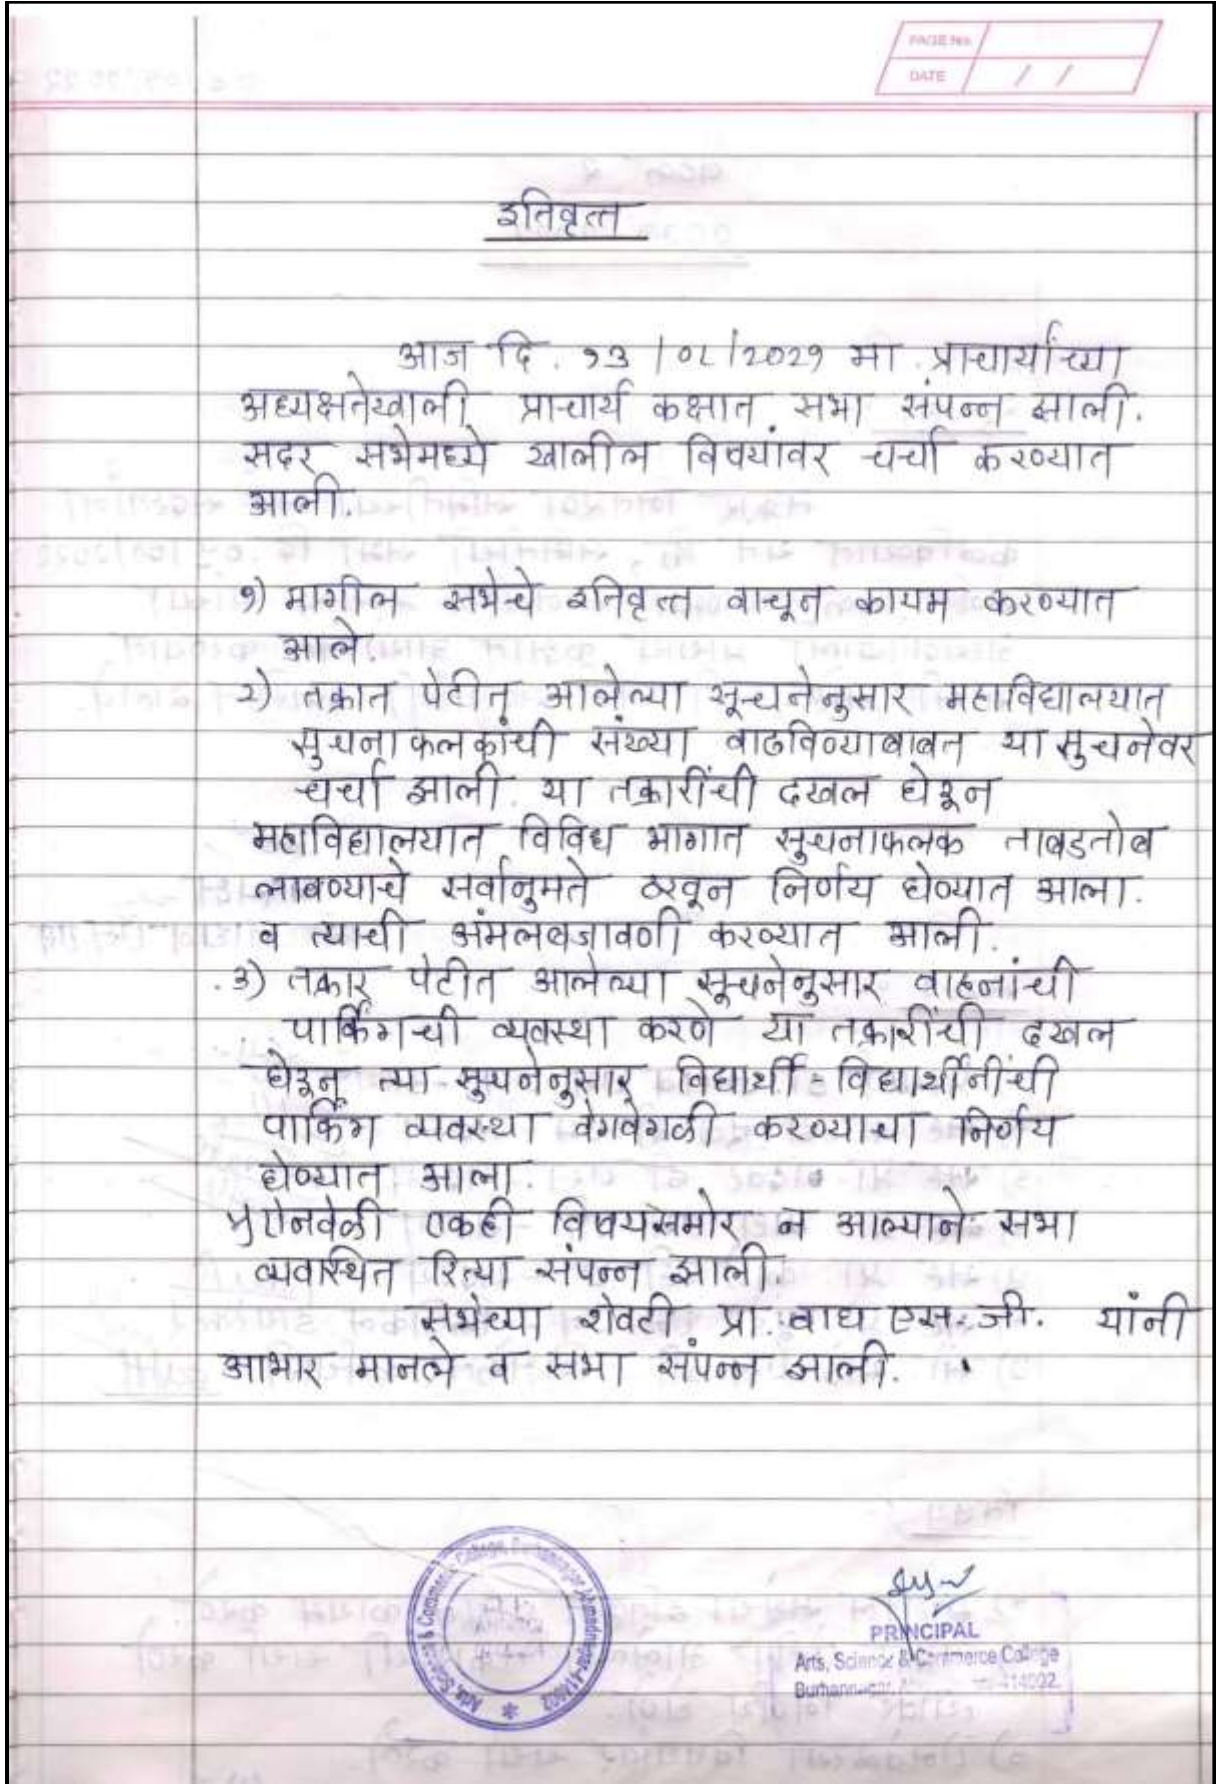 PAGE No.
DATE / /
इतिवृत्त
आज दि. १३/०८/२०२१ मा. प्राचार्यांच्या
अध्यक्षतेखाली प्राचार्य कक्षात सभा संपन्न झाली.
सदर सभेमध्ये खालील विषयांवर चर्चा करण्यात
आली.
१) मागील सभेचे इतिवृत्त वाचून कायम करण्यात
आले.
२) तक्रात पेटीत आलेल्या सूचनेनुसार महाविद्यालयात
सुचनाफलकांची संख्या वाढविण्याबाबत या सुचनेवर
चर्चा झाली. या तक्रारींची दखल घेऊन
महाविद्यालयात विविध भागात सुचनाफलक ताबडतोब
लावण्याचे सर्वानुमते ठरवून निर्णय घेण्यात आला.
व त्याची अंमलबजावणी करण्यात आली.
३) तक्रार पेटीत आलेल्या सूचनेनुसार वाहनांची
पार्किंगची व्यवस्था करणे या तक्रारींची दखल
घेऊन त्या सुचनेनुसार विद्यार्थी - विद्यार्थीनींची
पार्किंग व्यवस्था वेगवेगळी करण्याचा निर्णय
घेण्यात आला.
ऐनवेळी एकही विषयसमोर न आल्याने सभा
व्यवस्थित रित्या संपन्न झाली.
सभेच्या शेवटी प्रा. वाघ एस. जी. यांनी
आभार मानले व सभा संपन्न झाली.
Arts, Science & Commerce College, Burhannagar, Ahmednagar-414002
PRINCIPAL
Arts, Science & Commerce College
Burhannagar, 414002.